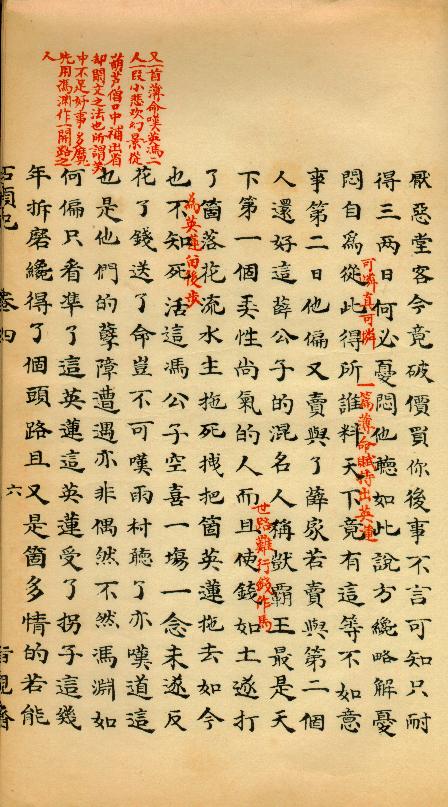 又一首薄命嘆英馮二
人一段小悲欢幻景從
葫芦僧口中補出省
却閑文之法也所謂美
中不足好事多魔
先用馮渊作一開路之
人
厭惡堂客今竟破價買你後事不言可知只耐
得三两日何必憂悶他聽如此說方纔略解憂
可憐真可憐
一篇薄命賦特出英蓮
悶自為從此得所誰料天下竟有這等不如意
事第二日他偏又賣與了薛家若賣與第二個
人還好這薛公子的混名人稱獃霸王最是天
世路難行錢作馬
下第一個弄性尚氣的人而且使錢如土遂打
了箇落花流水主拖死拽把箇英蓮拖去如今
為英蓮留後步
也不知死活這馮公子空喜一場一念未遂反
花了錢送了命豈不可嘆雨村聽了亦嘆道這
也是他們的孽障遭遇亦非偶然不然馮淵如
何偏只看準了這英蓮這英蓮受了拐子這幾
年折磨纔得了個頭路且又是箇多情的若能
石頭記 卷四 六 脂硯齋